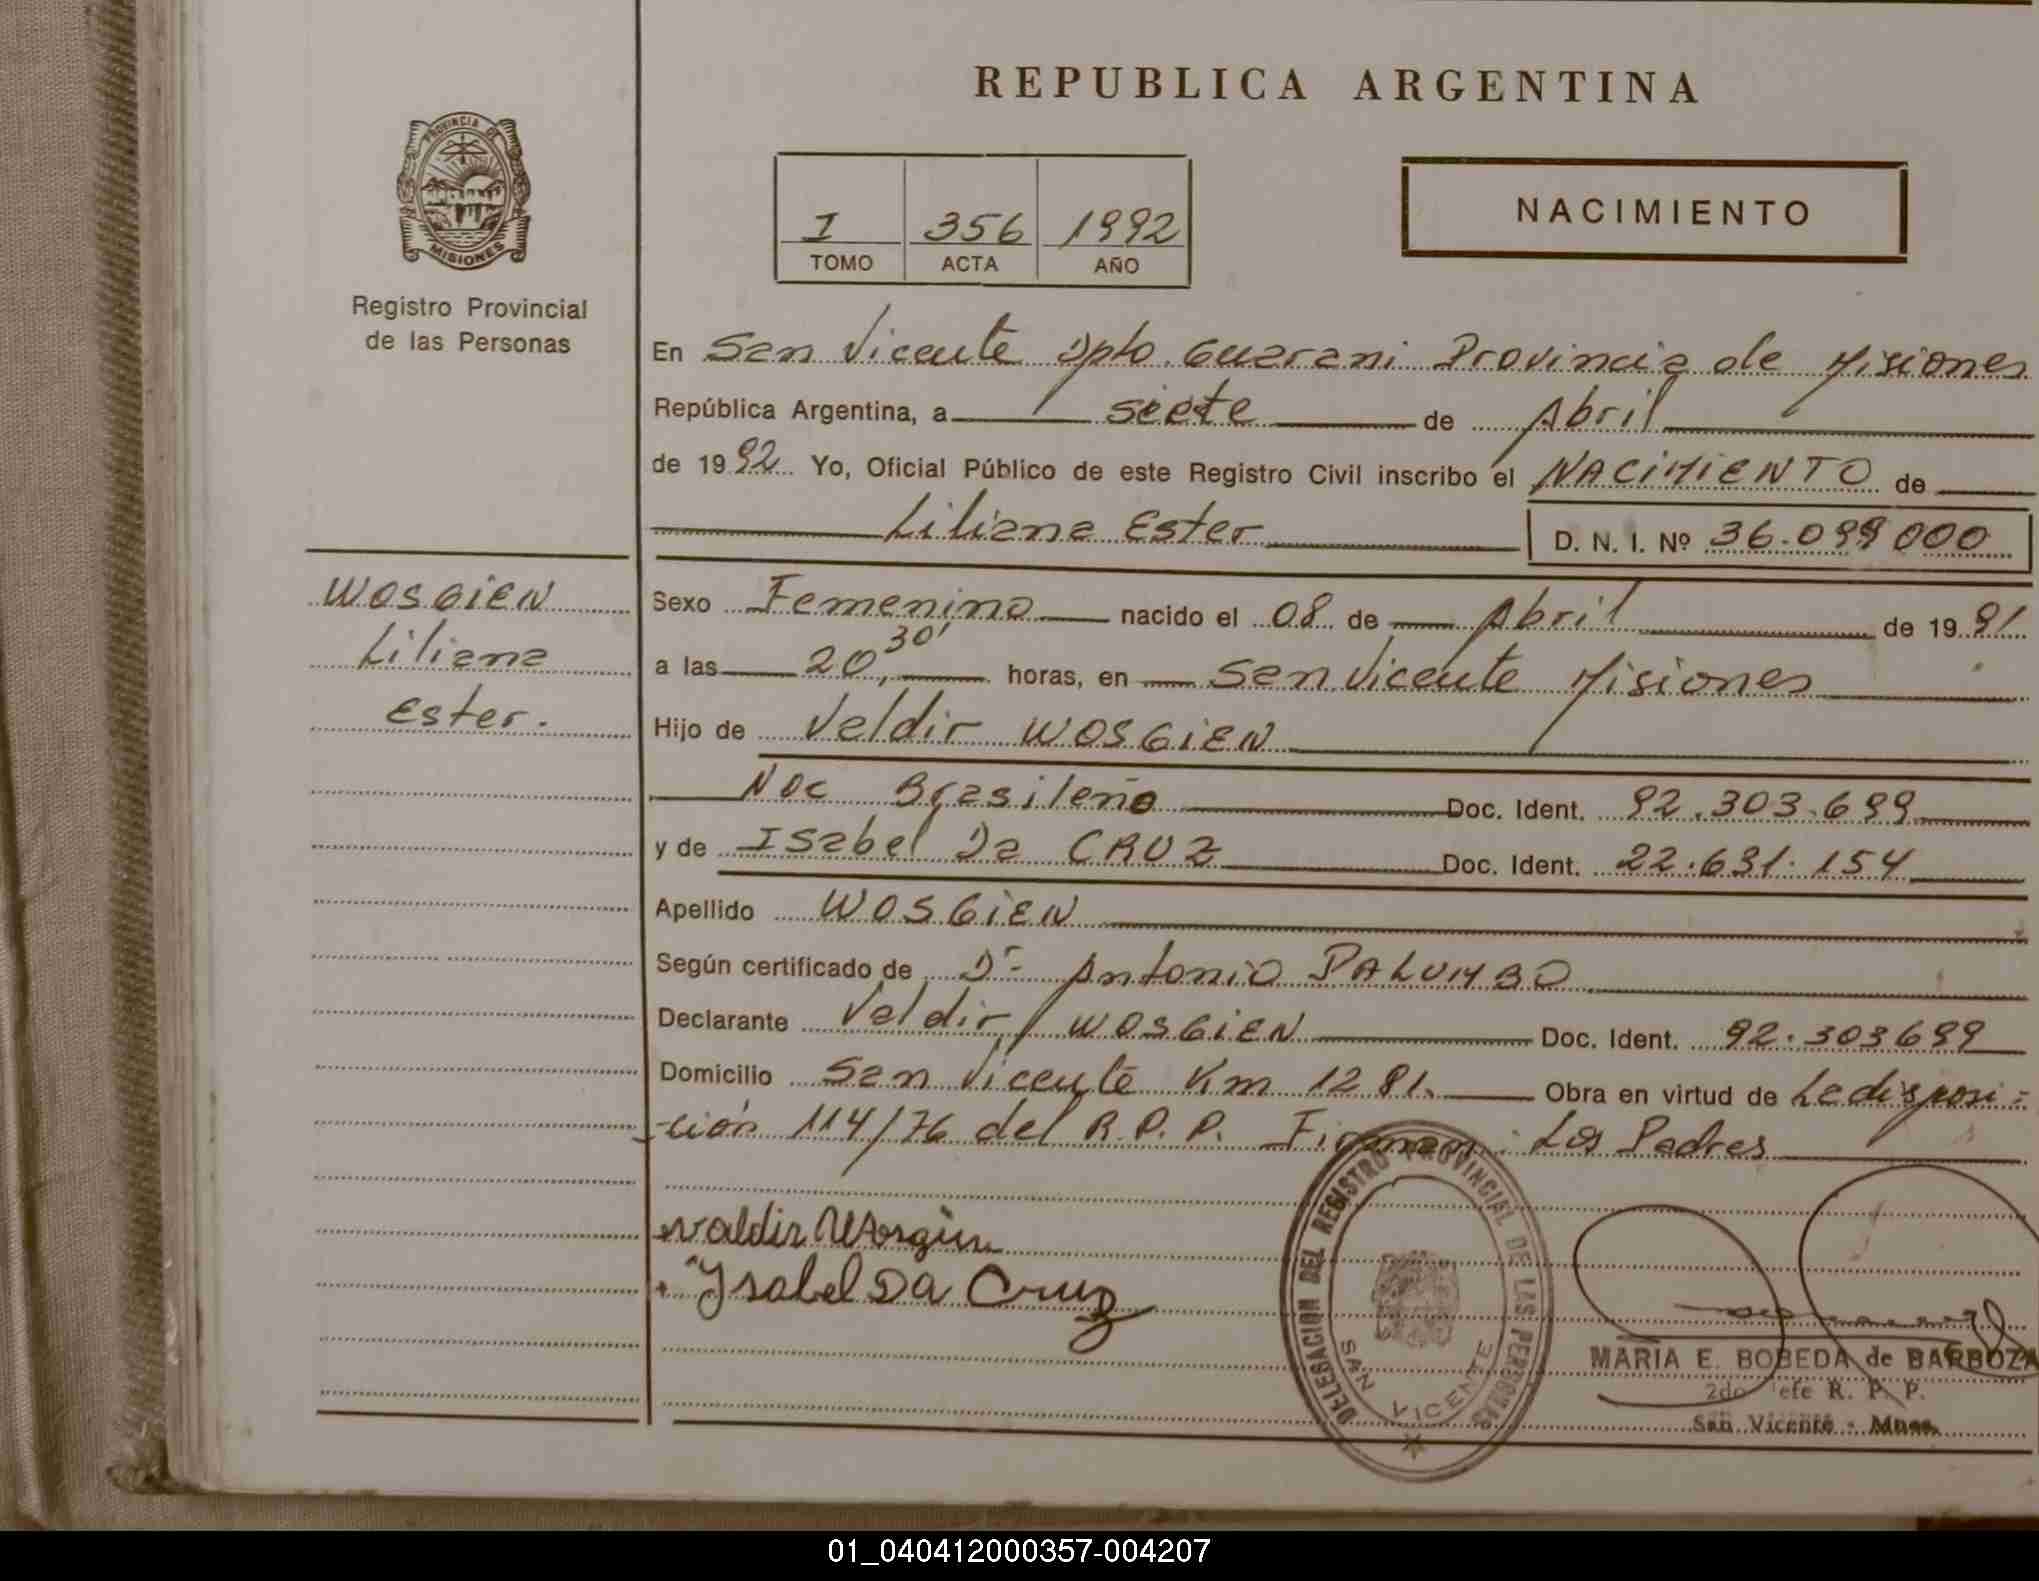 REPUBLICA ARGENTINA
PROVINCIA DE
MISIONES
Registro Provincial
de las Personas
I 356 1992
TOMO ACTA AÑO
NACIMIENTO
En San Vicente Dpto. Guarani Provincia de Misiones
República Argentina, a siete de Abril
de 1992 Yo, Oficial Público de este Registro Civil inscribo el NACIMIENTO de
Liliana Ester
D. N. I. Nº 36.099 000
WOSGIEN
Liliana
Ester.
Sexo Femenino nacido el 08 de Abril de 1991
a las 20,30' horas, en San Vicente Misiones
Hijo de Valdir WOSGIEN
Nac Brasileño Doc. Ident. 92.303.699
y de Isabel Da CRUZ Doc. Ident. 22.631.154
Apellido WOSGIEN
Según certificado de Dr Antonio PALUMBO
Declarante Valdir WOSGIEN Doc. Ident. 92.303699
Domicilio San Vicente Km 1281. Obra en virtud de La disposi=
-ción 114/76 del R.P.P. Firman: Los Padres
Valdir Wosgien
Ysabel Da Cruz
DELEGACION DEL REGISTRO PROVINCIAL DE LAS PERSONAS
SAN VICENTE
MARIA E. BOBEDA de BARBOZA
2do Jefe R. P. P.
San Vicente - Mnes.
01_040412000357-004207